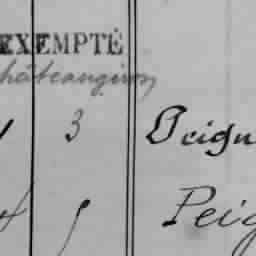 EXEMPTÉ
châteaugiron
3 Peign
4 5 Peig